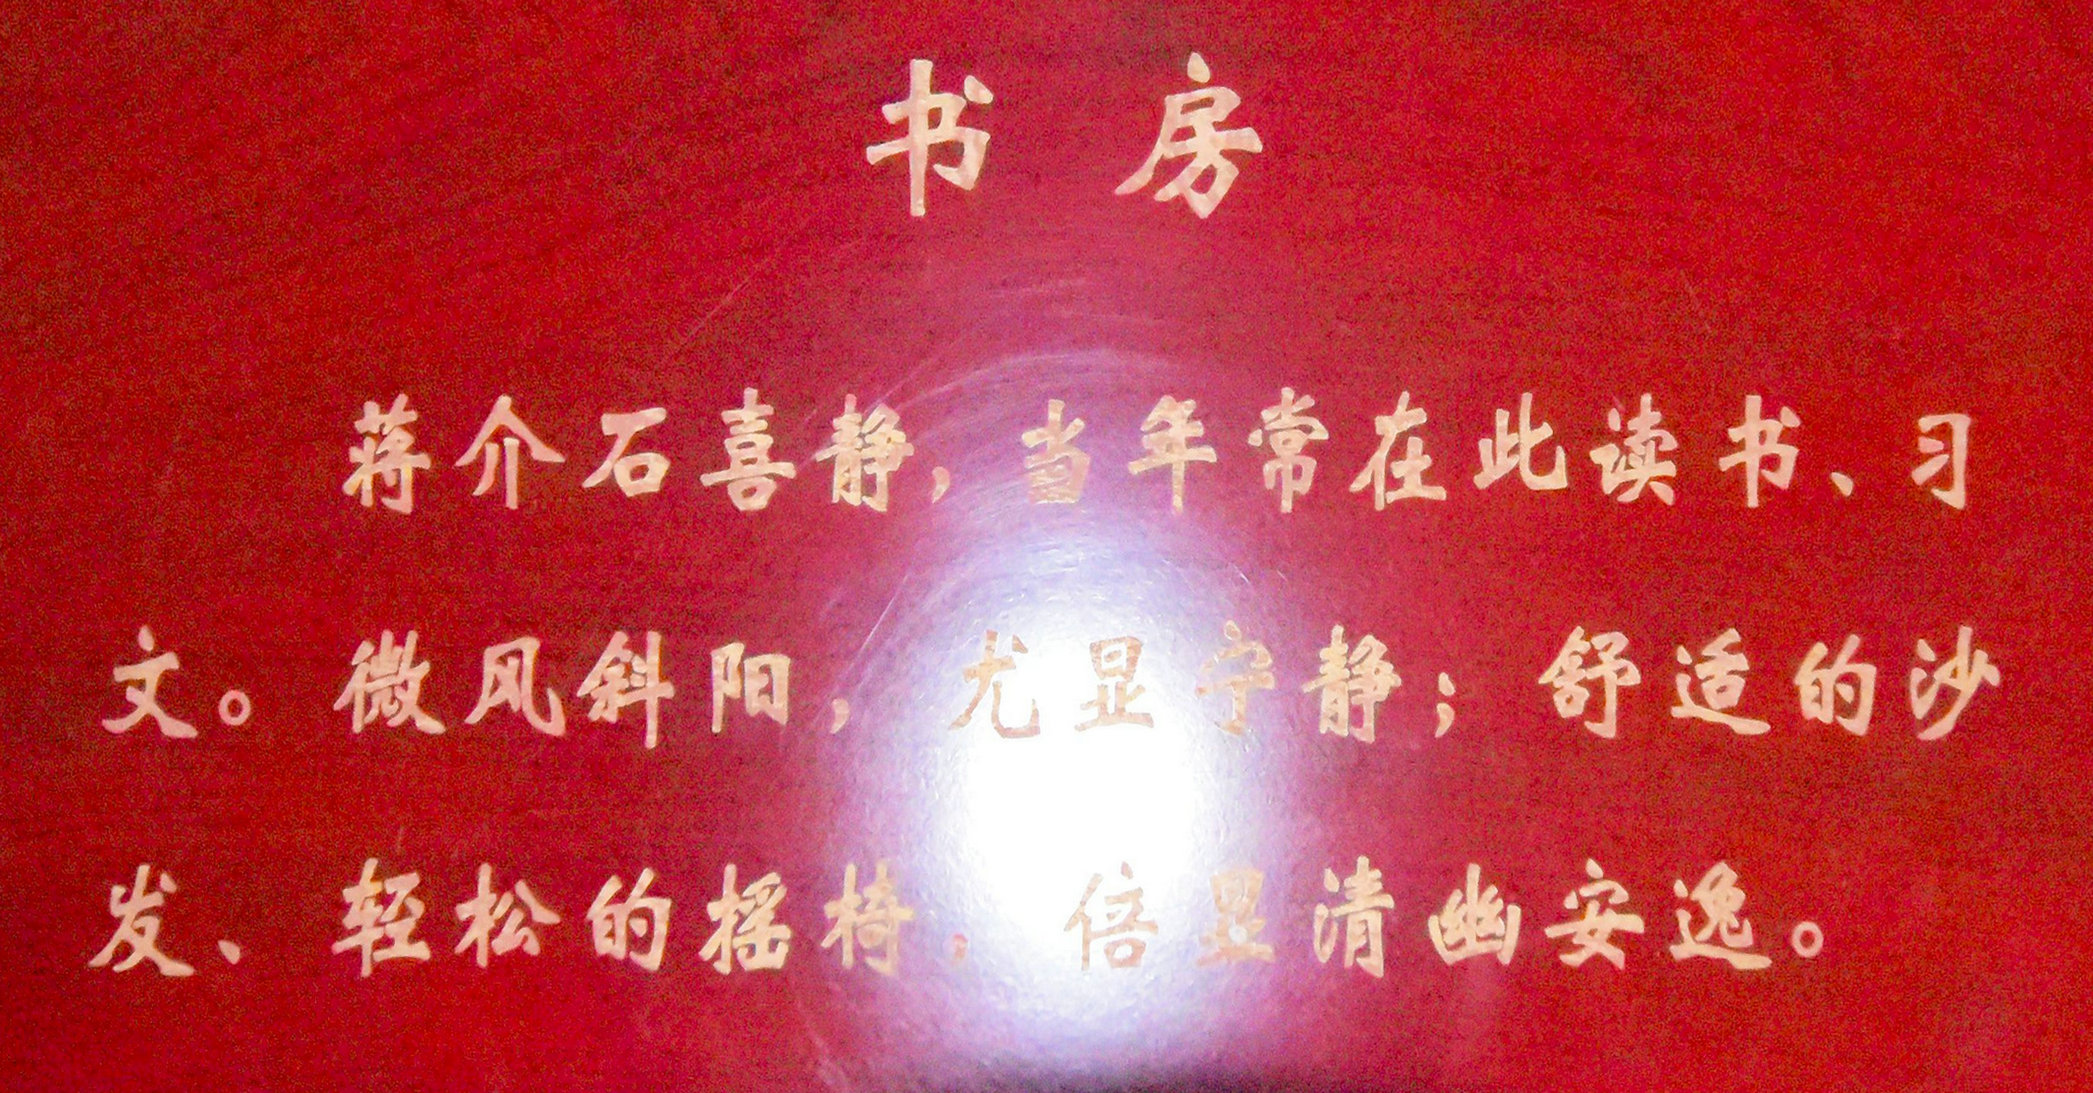 书房
蒋介石喜静，当年常在此读书、习
文。微风斜阳，尤显宁静；舒适的沙
发、轻松的摇椅，倍显清幽安逸。